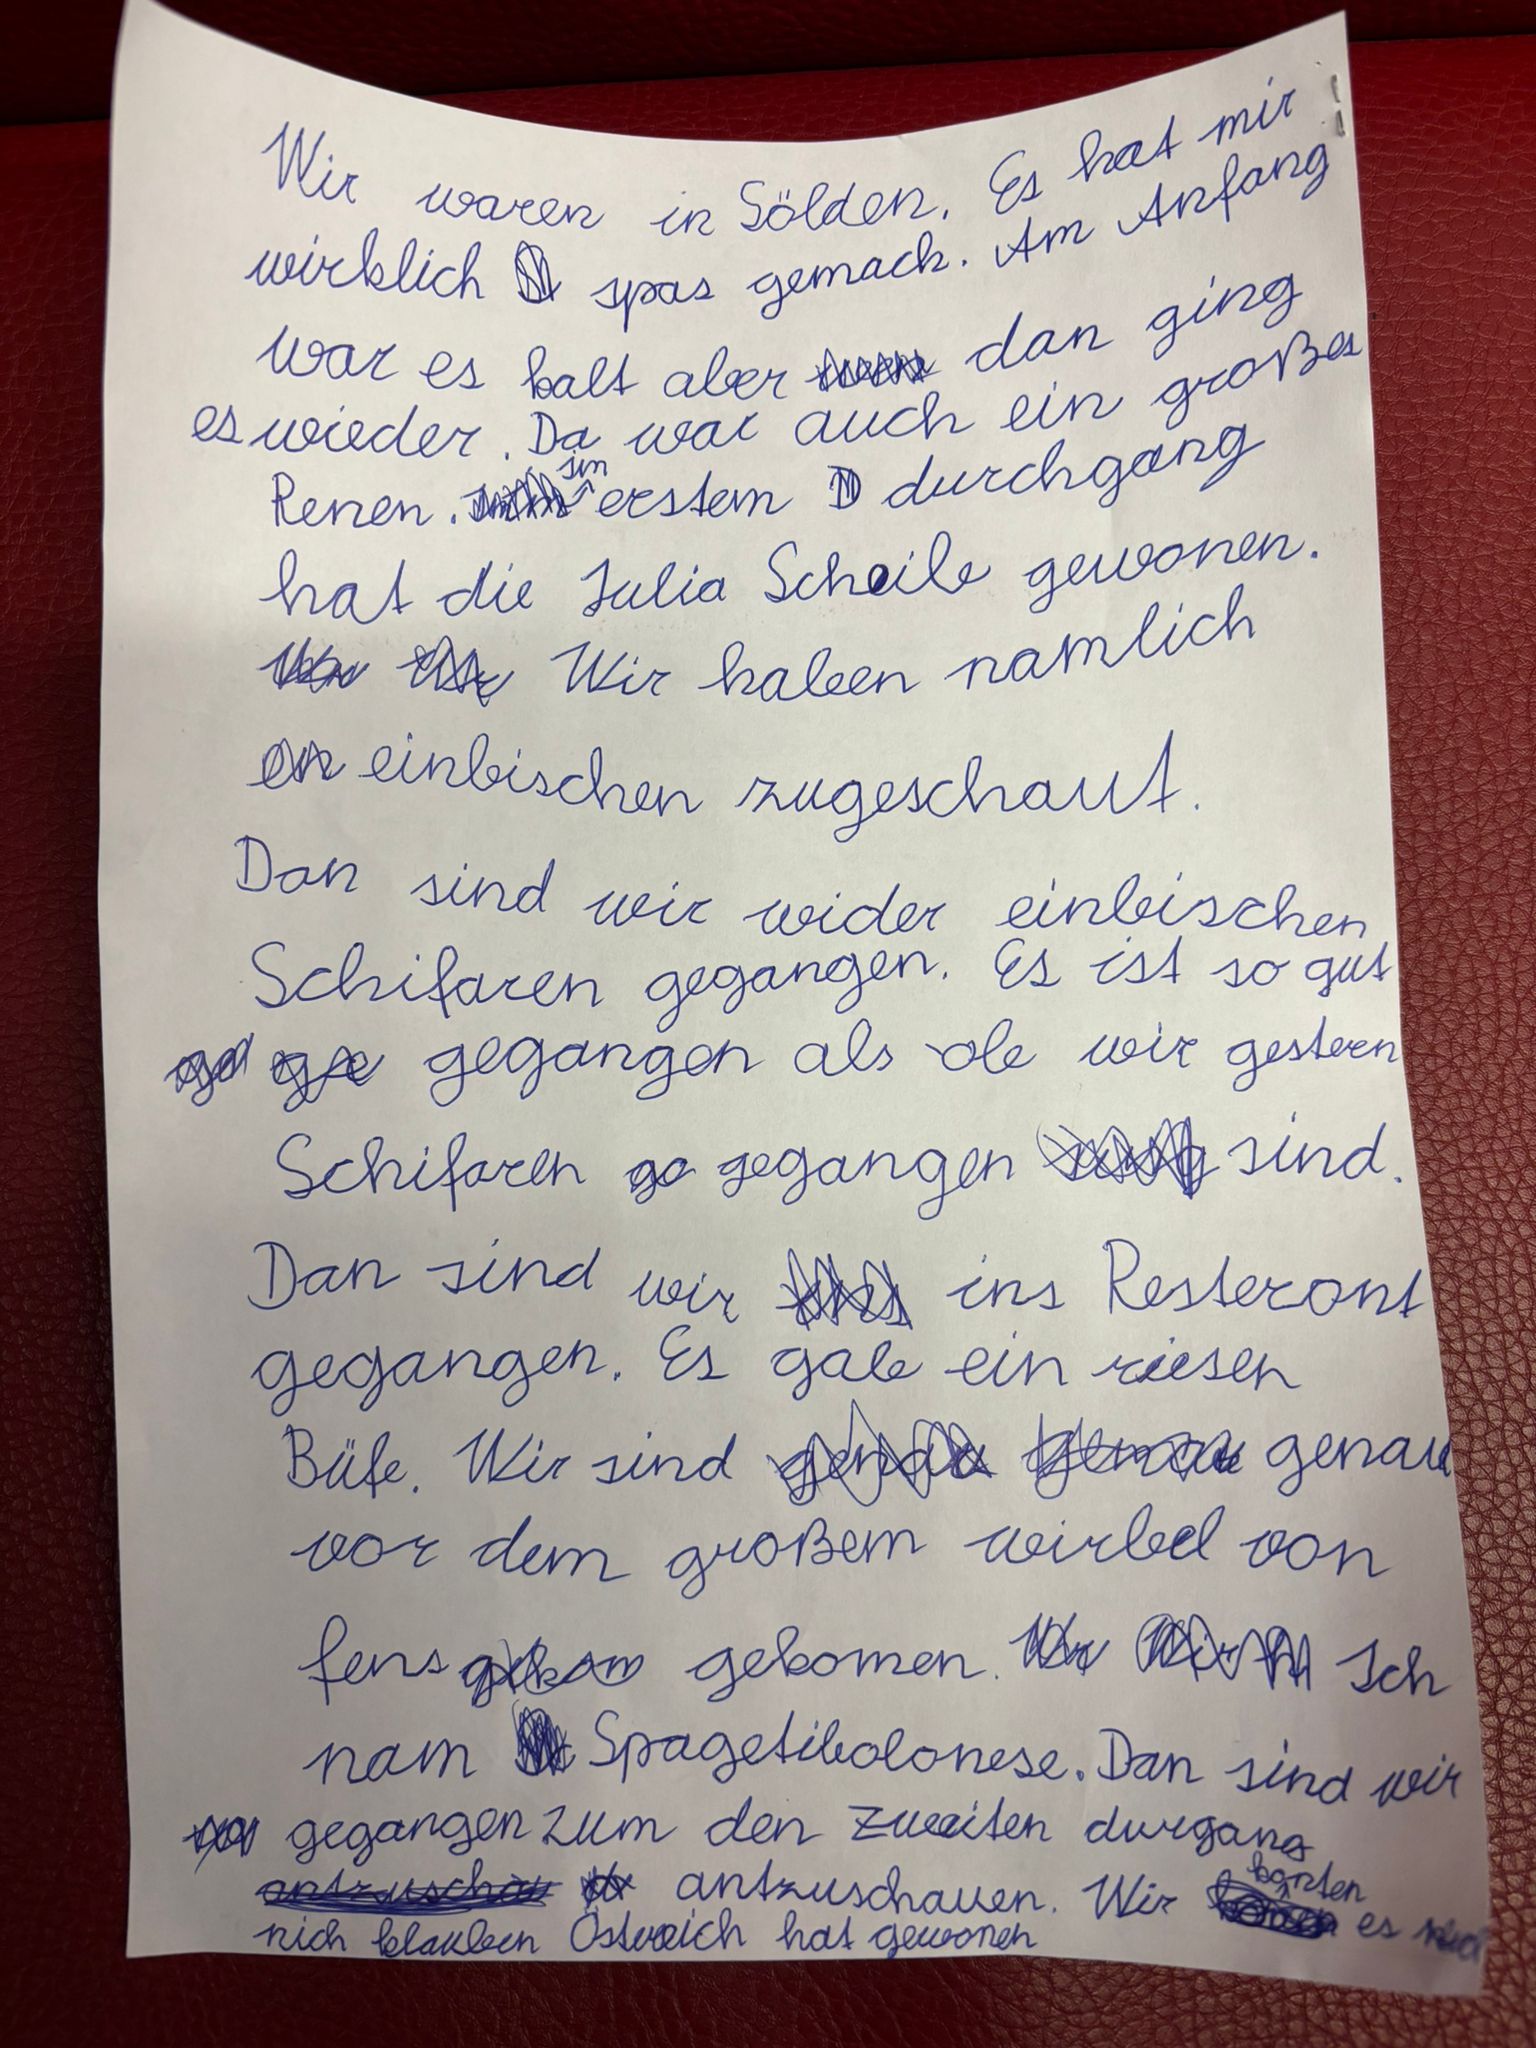 Wir waren in Sölden. Es hat mir
wirklich spas gemach. Am Anfang
war es kalt aber dan ging
es wieder. Da war auch ein großes
Renen. im erstem durchgang
hat die Julia Scheile gewonen.
Wir haben namlich
einbischen zugeschaut.
Dan sind wir wider einbischen
Schifaren gegangen. Es ist so gut
gegangen als ob wir gestern
Schifaren gegangen sind.
Dan sind wir ins Resteront
gegangen. Es gab ein riesen
Büfe. Wir sind genau
vor dem großem wirbel von
fens gekomen. Ich
nam Spagetibolonese. Dan sind wir
gegangen zum den zweiten durgang
antzuschauen. Wir konten es
nich klauben Östreich hat gewonen